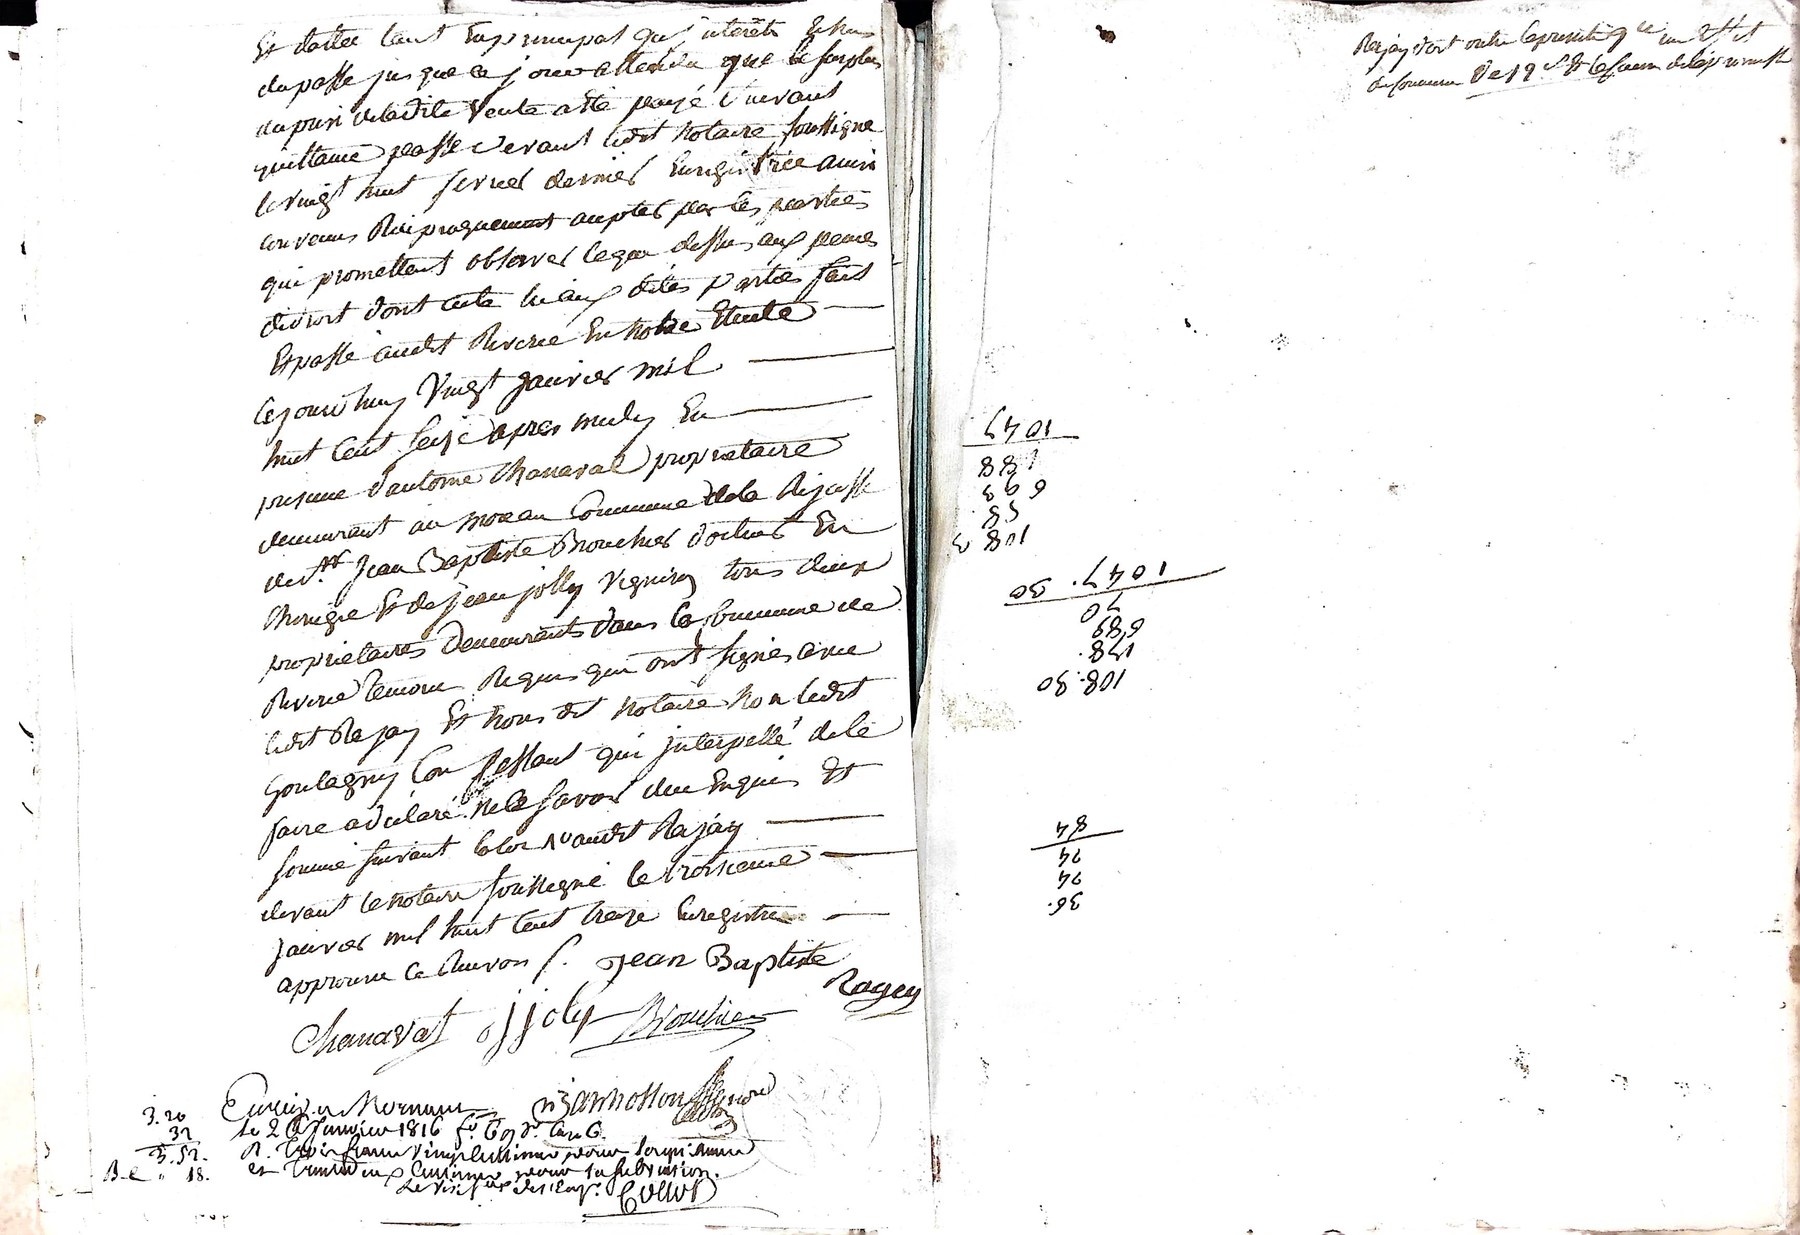 Et dattée tant en principal qu'interêts Echus
du passé jusque a ce jour attendu que le surplus
du prix de ladite Vente a été payé suivant
quittance passée devant ledit Notaire soussigné
le vingt huit fevrier dernier Enregistrée ainsi
convenu Réciproquement accepté par les parties
qui promettent observer ce que dessus aux peines
de droit dont acte lu aux dites parties fait
Et passé audit Riverie En Notre Etude
Cejourd'huy Vingt Janvier mil
huit Cent Seize après midy En
présence d'antoine Chanavat propriétaire
demeurant au Commune de la Rajasse
de Mr Jean Baptiste Brouchier docteur En
Chirurgie Et de Jean jolly Vigneron tous deux
propriétaires Demeurants dans la Commune de
Riverie Temoins Requis qui ont signés avec
ledit Rajay Et Nous dit Notaire Non ledit
Goutagny Confessant qui interpellé de le
faire a déclaré Ne le savoir de ce Enquis Et
sommé suivant la loi audit Rajay
devant le Notaire soussigné le troisieme
Janvier mil huit Cent treize Enregistré
approuvé ce Renvoi J. Jean Baptiste
Ragey
Chanavat j joly Brouchier
3.20 Enregistré a Mornant
32 le 2 Janvier 1816 fo. 6 Vo. Case 6.
3.52. R. Trois francs Vingt Centimes pour
B.e " 18. et Trente deux Centimes pour la subvention.
1047
881
83
108
1047. 30
70
689
178.
108.30
84
24
24
36.